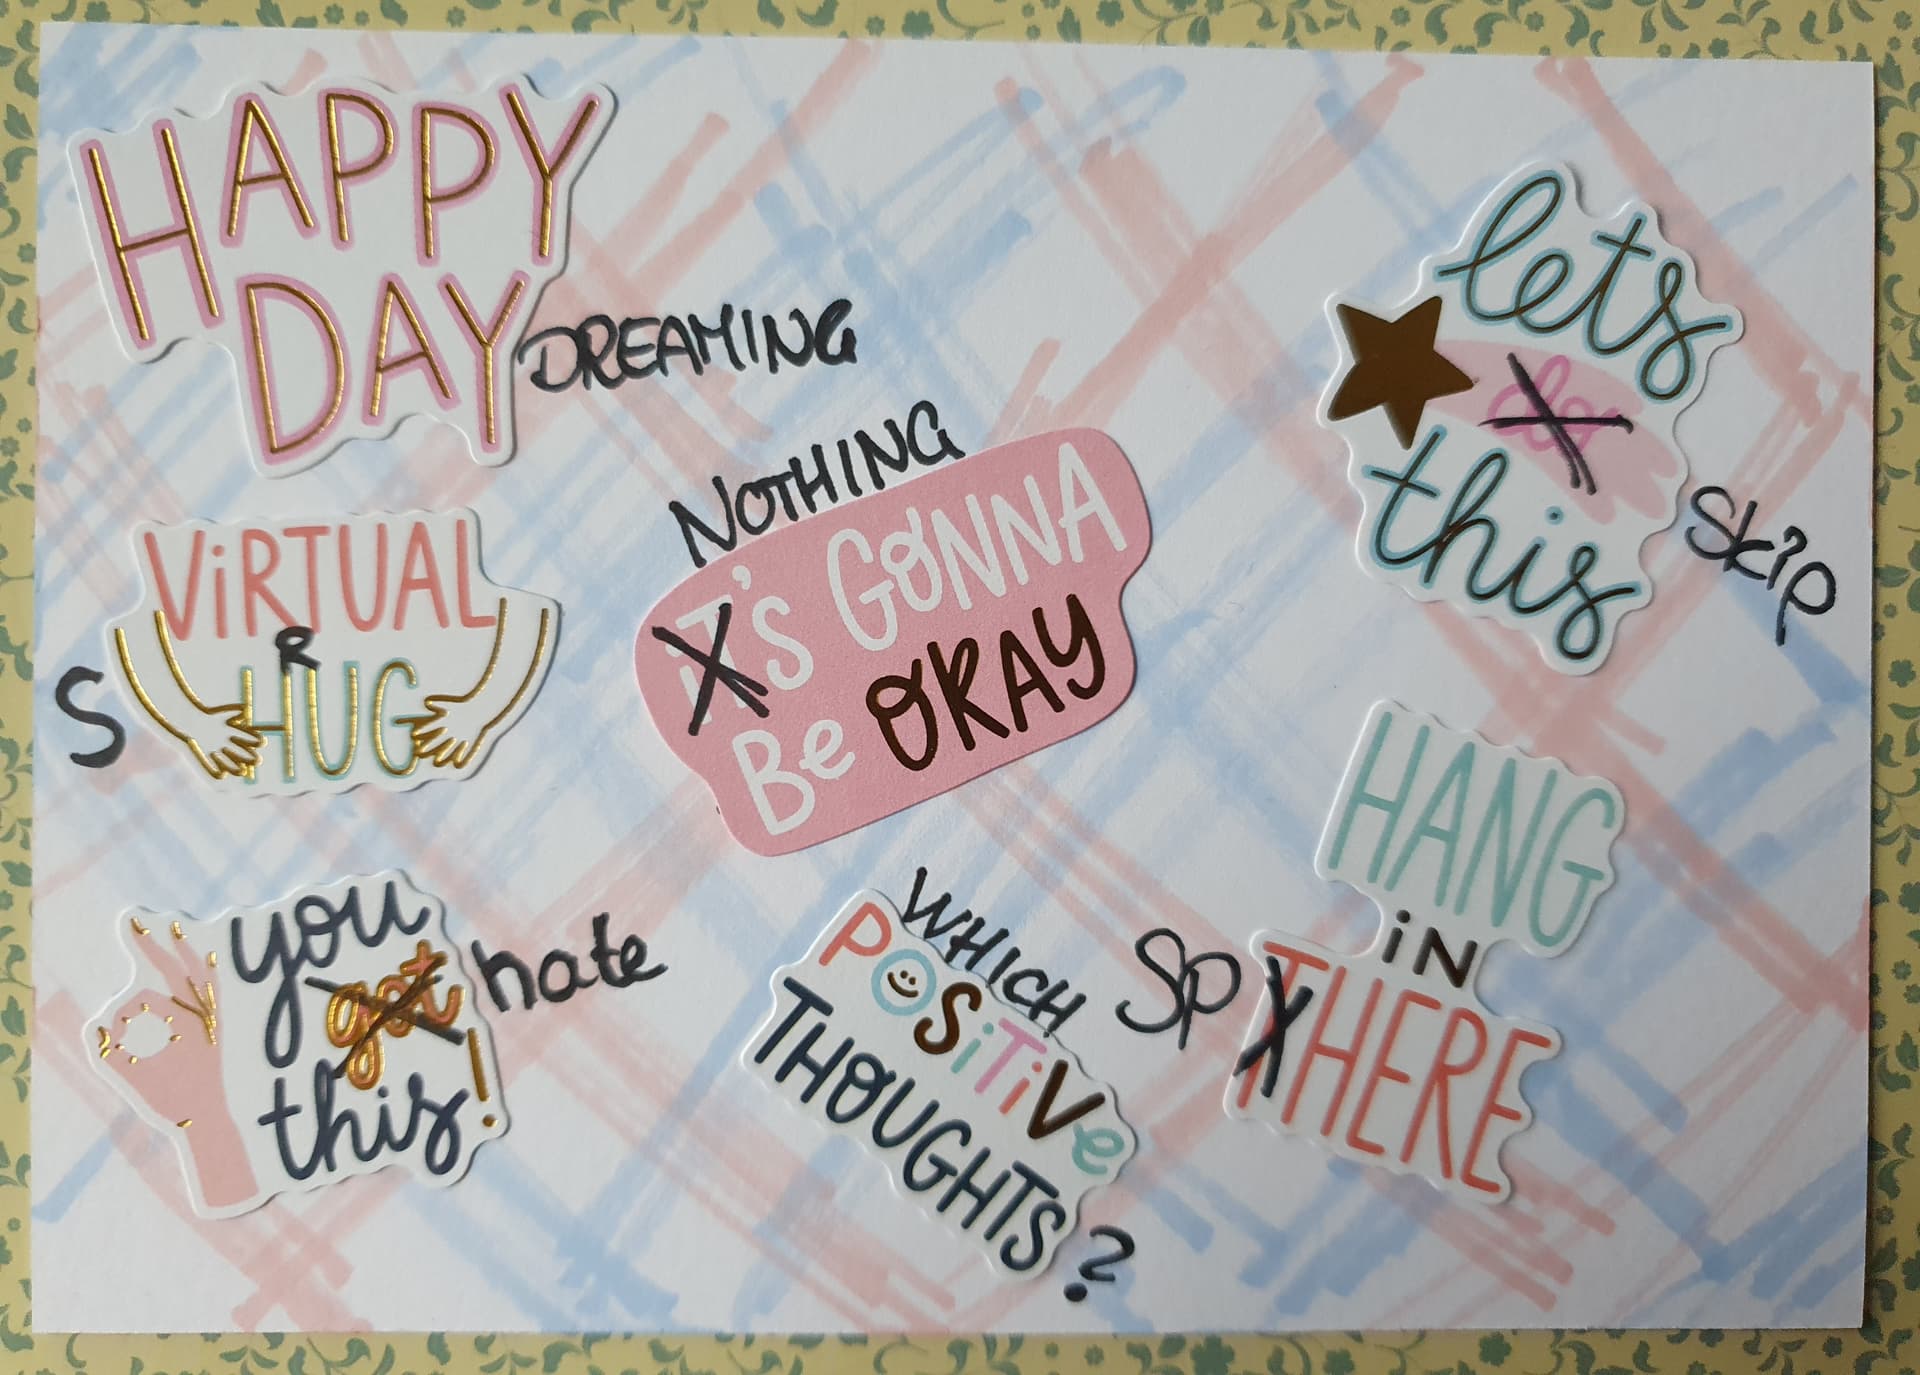 HAPPY
DAY
DREAMING
lets
do
this
skip
NOTHING
iT'S GONNA
Be OKAY
ViRTUAL
R
S HUG
HANG
iN
SP THERE
you
got hate
this!
WHICH
POSiTiVe
THOUGHTS ?